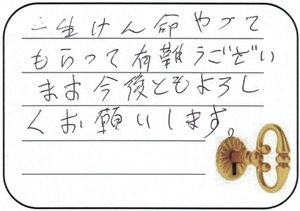 一生けん命やって
もらって有難うござい
ます今後ともよろし
くお願いします。